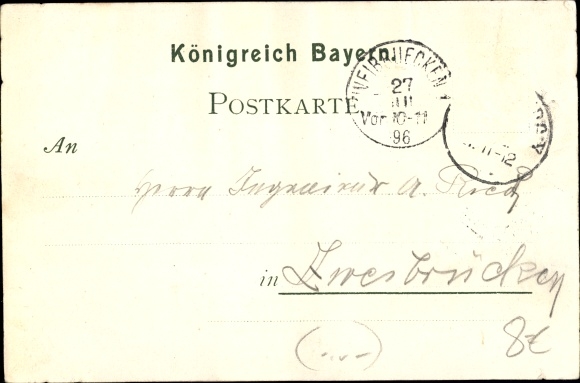 Königreich Bayern.
ZWEIBRUECKEN 1
27
JUL
Vor 10-11
96
POSTKARTE
11-12
An
Herrn Ingenieur A.
in Zweibrücken
(...)
8€